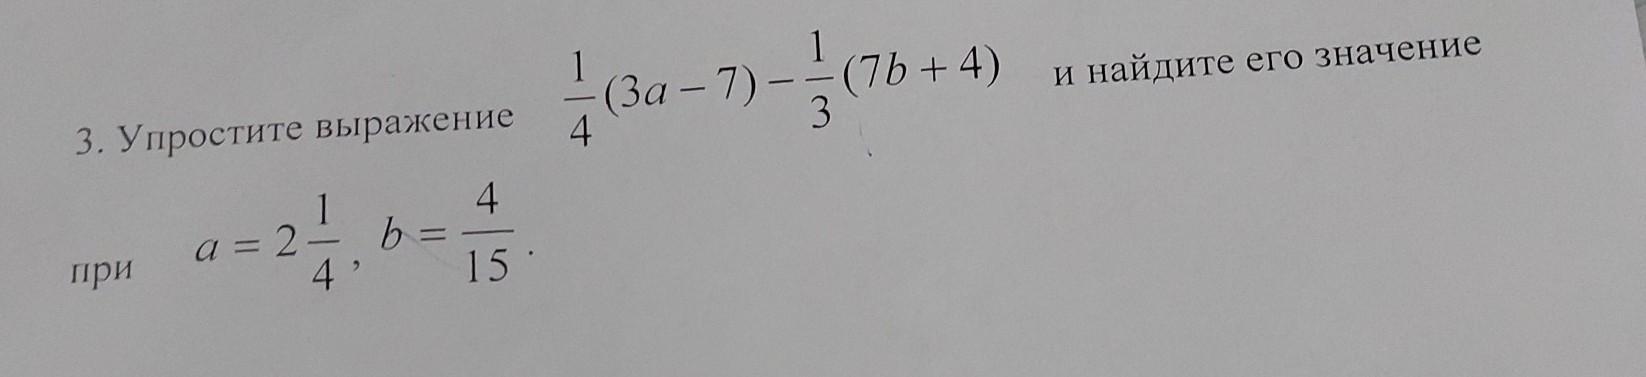 3. Упростите выражение $\frac{1}{4}(3a-7)-\frac{1}{3}(7b+4)$ и найдите его значение
при $a=2\frac{1}{4}, b=\frac{4}{15}.$